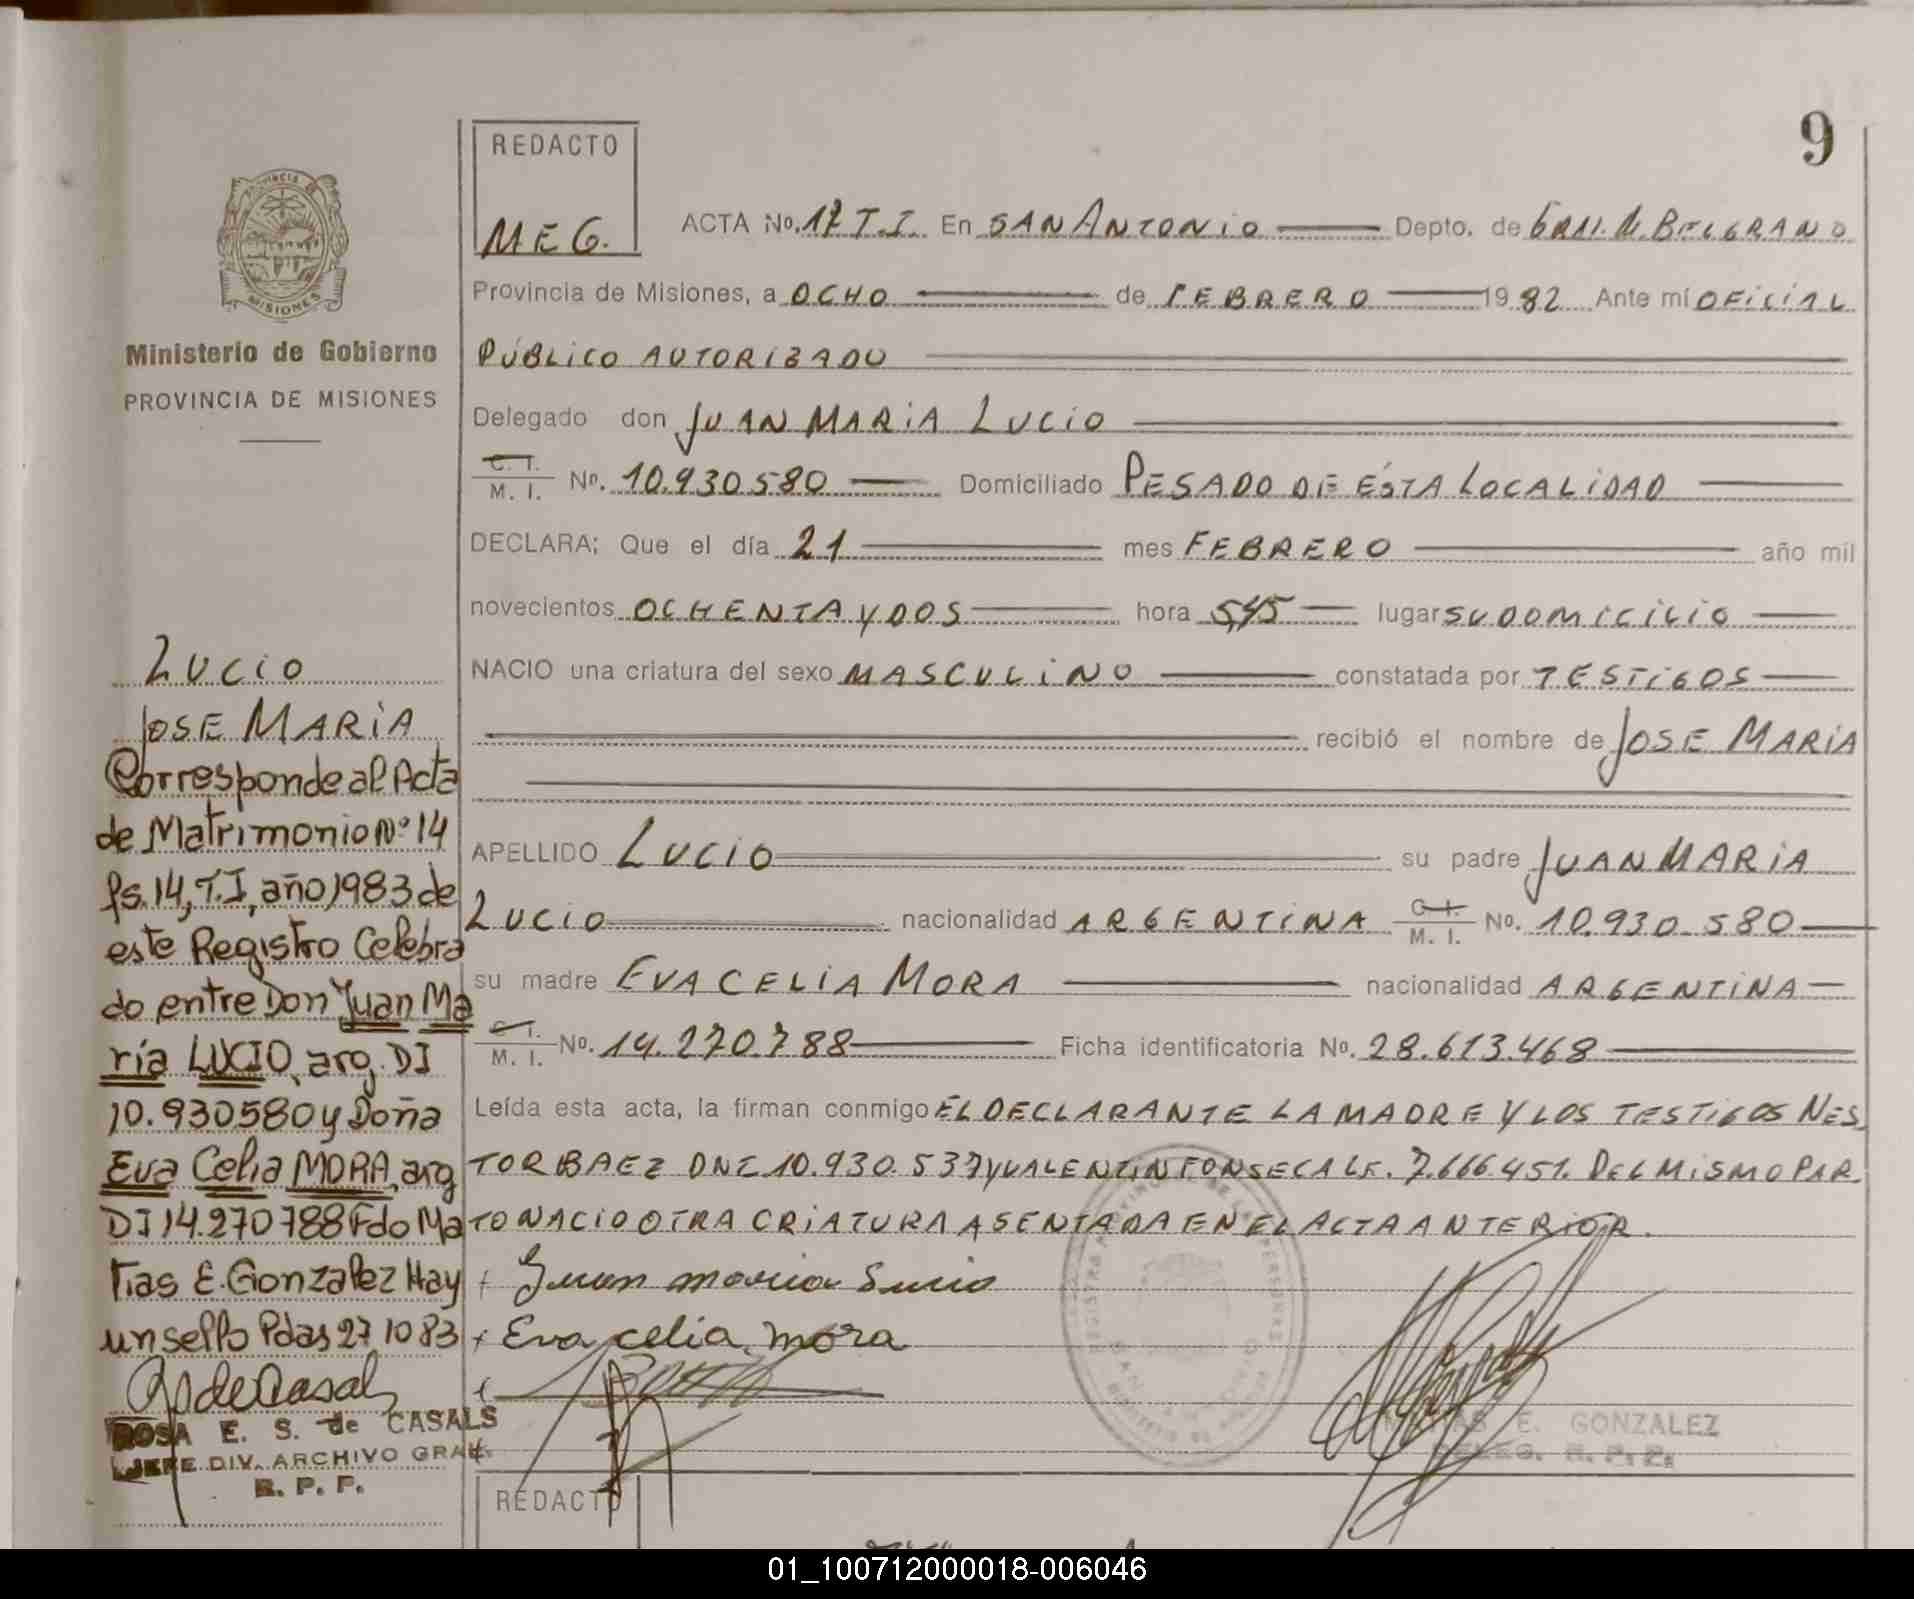 9
REDACTO
MEG.
ACTA No. 17 T.I. En SAN ANTONIO Depto. de GRAL. M. BELGRANO
Provincia de Misiones, a OCHO de FEBRERO 1982 Ante mí OFICIAL
PÚBLICO AUTORIZADO
Delegado don JUAN MARIA LUCIO
C. I.
M. I. No. 10.930.580 Domiciliado PESADO DE ÉSTA LOCALIDAD
DECLARA; Que el día 21 mes FEBRERO año mil
novecientos OCHENTA Y DOS hora 5,45 lugar SU DOMICILIO
NACIO una criatura del sexo MASCULINO constatada por TESTIGOS
recibió el nombre de JOSE MARIA
APELLIDO LUCIO su padre JUAN MARIA
LUCIO nacionalidad ARGENTINA C. I. M. I. No. 10.930.580
su madre EVA CELIA MORA nacionalidad ARGENTINA
C. I.
M. I. No. 14.270.788 Ficha identificatoria No. 28.613.468
Leída esta acta, la firman conmigo EL DECLARANTE LA MADRE Y LOS TESTIGOS NES
TOR BAEZ DNI 10.930.537 y VALENTIN FONSECA LE. 7.666.451. DEL MISMO PAR
TO NACIO OTRA CRIATURA ASENTADA EN EL ACTA ANTERIOR.
Juan maria Lucio
Eva celia mora
E. GONZALEZ
DELEG. R. P. P.
REDACTO
PROVINCIA DE
MISIONES
Ministerio de Gobierno
PROVINCIA DE MISIONES
LUCIO
JOSE MARIA
Corresponde al Acta
de Matrimonio Nº 14
fs. 14, T.I, año 1983 de
este Registro Celebra
do entre Don Juan Ma
ría LUCIO, arg. DI
10.930580 y Doña
Eva Celia MORA, arg
DI 14.270788 Fdo Ma
tias E. Gonzalez Hay
un sello Pdas 27 10 83
RdeCasals
ROSA E. S. de CASALS
JEFE DIV. ARCHIVO GRAL.
R. P. P.
01_100712000018-006046